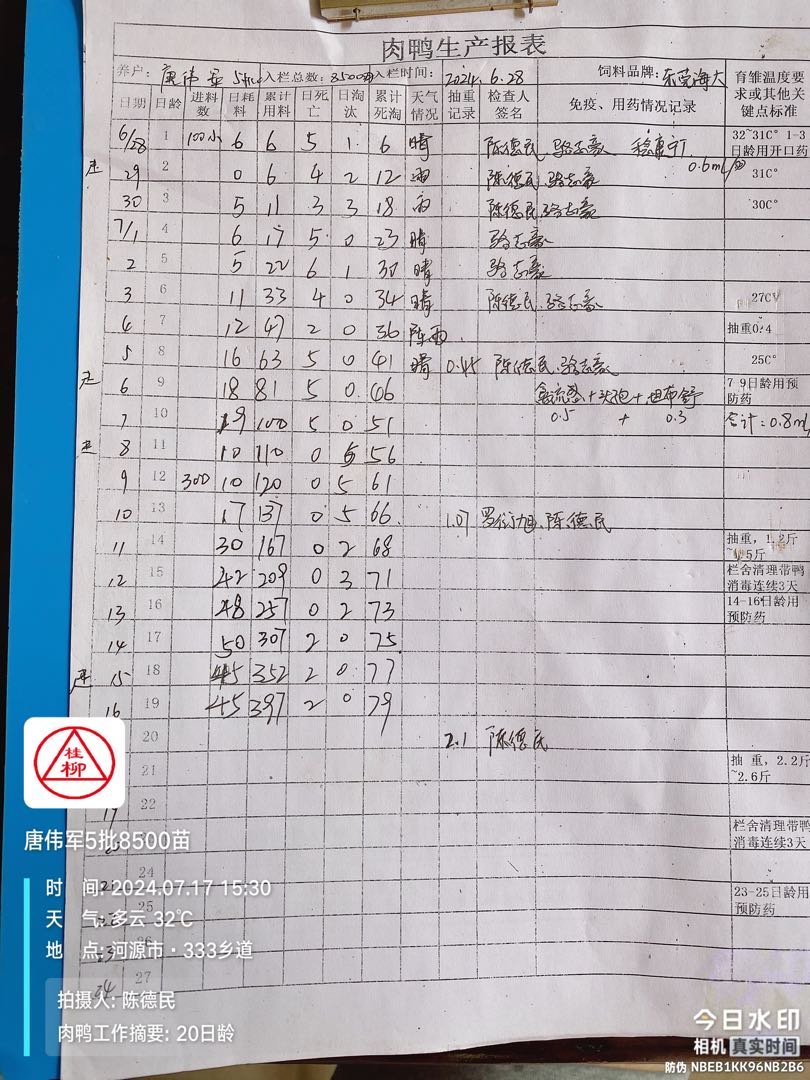 肉鸭生产报表
养户: 唐伟军 5批 入栏总数: 8500苗 入栏时间: 2024.6.28 饲料品牌: 东莞海大 育雏温度要求或其他关键点标准
日期 日龄 进料数 日耗料 累计用料 日死亡 日淘汰 累计死淘 天气情况 抽重记录 检查人签名 免疫、用药情况记录
6/28 1 100小 6 6 5 1 6 晴 陈德民.骆志豪 32~31C° 1-3日龄用开口药
29 2 0 6 4 2 12 雨 陈德民.骆志豪 0.6ml/ 31C°
30 3 5 11 3 3 18 雨 陈德民.骆志豪 30C°
7/1 4 6 17 5 0 23 晴 骆志豪
2 5 5 22 6 1 30 晴 骆志豪
3 6 11 33 4 0 34 晴 陈德民.骆志豪 27C°
4 7 12 47 2 0 36 阵雨 抽重0.4
5 8 16 63 5 0 41 晴 0.45 陈德民.骆志豪 25C°
6 9 18 81 5 0 46 禽流感+头孢+ 7-9日龄用预防药
7 10 19 100 5 0 51 0.5 + 0.3 合计:0.8ml
8 11 10 110 0 5 56
9 12 300 10 120 0 5 61
10 13 17 137 0 5 66 1.07 陈德民
11 14 30 167 0 2 68 抽重,1.2斤~1.5斤
12 15 42 209 0 3 71 栏舍清理带鸭消毒连续3天
13 16 48 257 0 2 73 14-16日龄用预防药
14 17 50 307 2 0 75
15 18 45 352 2 0 77
16 19 45 397 2 0 79
20 2.1 陈德民
21 抽重,2.2斤~2.6斤
22
栏舍清理带鸭消毒连续3天
24
25 23-25日龄用预防药
26
27
24
桂柳
唐伟军5批8500苗
时 间: 2024.07.17 15:30
天 气: 多云 32℃
地 点: 河源市·333乡道
拍摄人: 陈德民
肉鸭工作摘要: 20日龄
今日水印
相机 真实时间
防伪 NBEB1KK96NB2B6